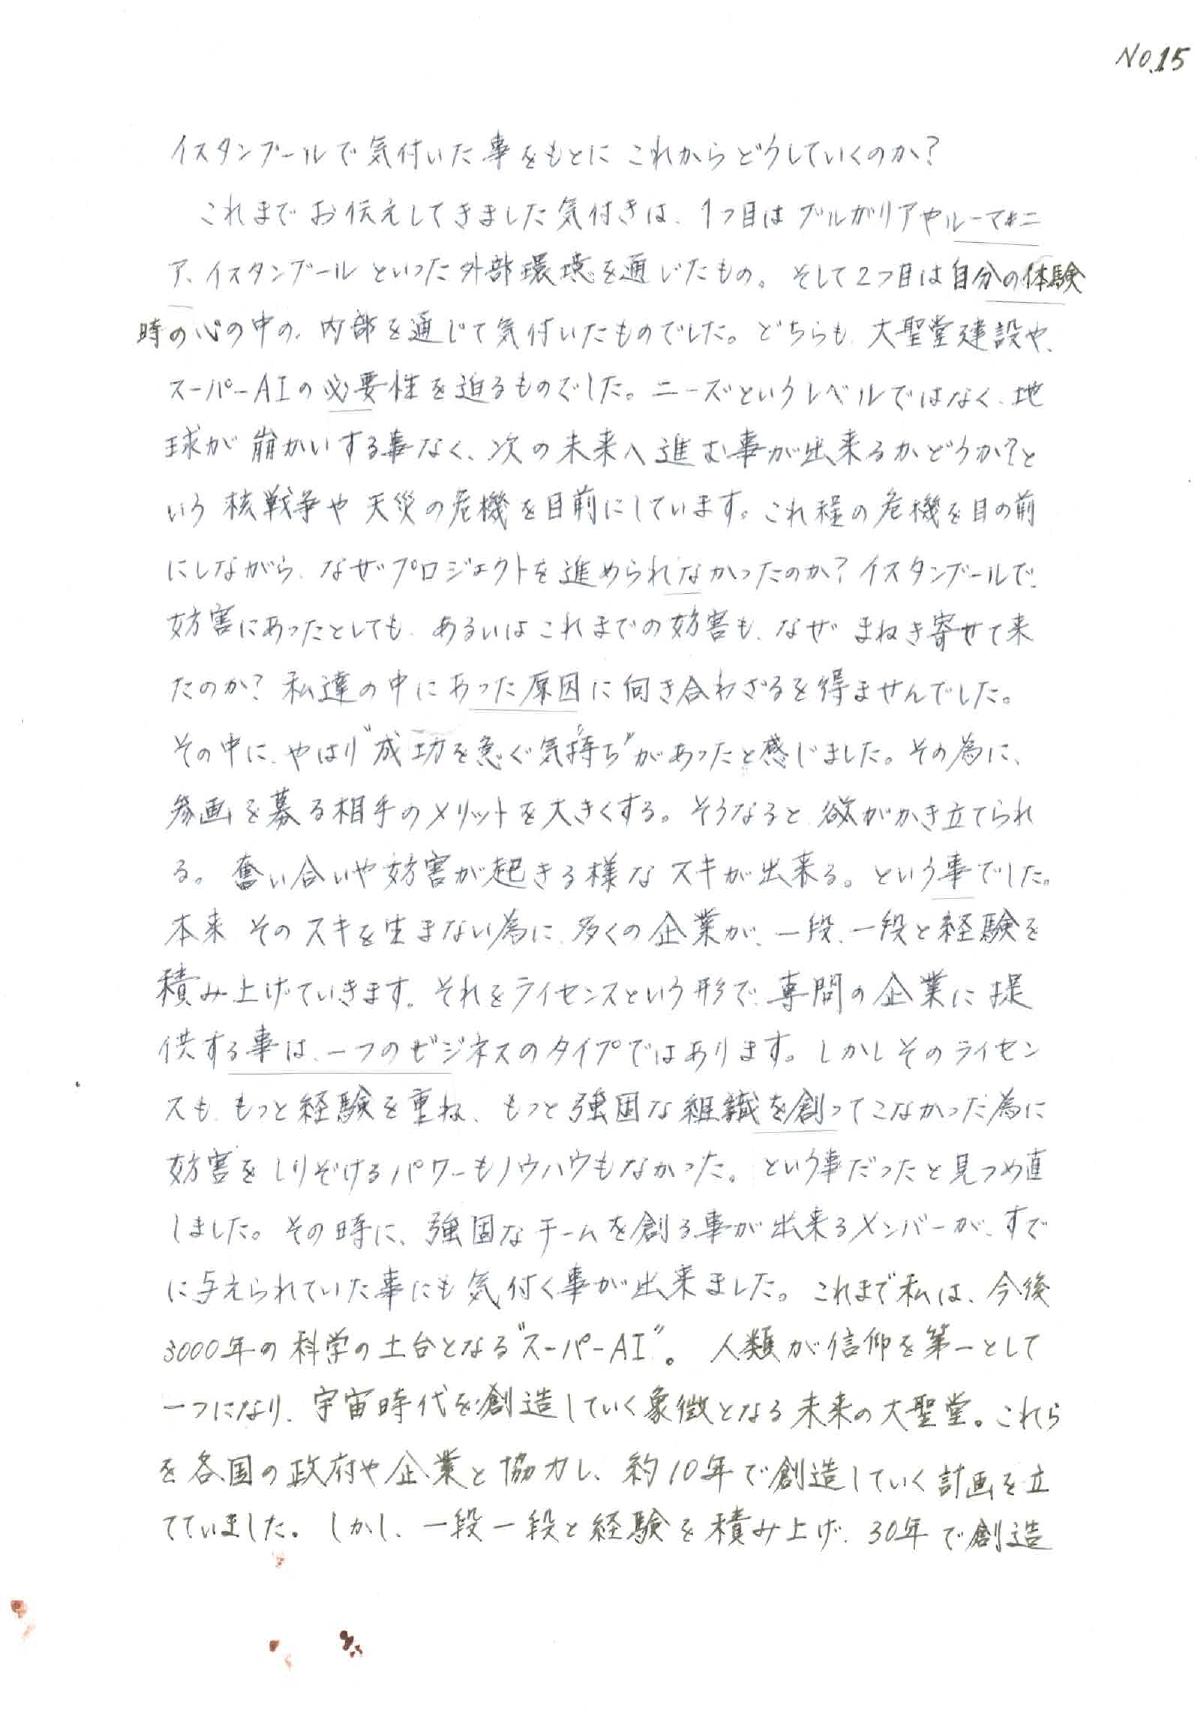 No.15
イスタンブールで気付いた事をもとにこれからどうしていくのか?
これまでお伝えしてきました気付きは、1つ目はブルガリアやルーマニ
ア、イスタンブールといった外部環境を通じたもの。そして2つ目は自分の体験
時の心の中の、内部を通じて気付いたものでした。どちらも、大聖堂建設や、
スーパーAIの必要性を迫るものでした。ニーズというレベルではなく、地
球が崩かいする事なく、次の未来へ進む事が出来るかどうか?と
いう核戦争や天災の危機を目前にしています。これ程の危機を目の前
にしながら、なぜプロジェクトを進められなかったのか?イスタンブールで、
妨害にあったとしても、あるいはこれまでの妨害も、なぜまねき寄せて来
たのか?私達の中にあった原因に向き合わざるを得ませんでした。
その中に、やはり"成功を急ぐ気持ち"があったと感じました。その為に、
参画を募る相手のメリットを大きくする。そうなると、欲がかき立てられ
る。奮い合いや妨害が起きる様なスキが出来る。という事でした。
本来そのスキを生まない為に、多くの企業が、一段、一段と経験を
積み上げていきます。それをライセンスという形で、専問の企業に提
供する事は、一つのビジネスのタイプではあります。しかしそのライセン
スも、もっと経験を重ね、もっと強固な組織を創ってこなかった為に
妨害をしりぞけるパワーもノウハウもなかった。という事だったと見つめ直
しました。その時に、強固なチームを創る事が出来るメンバーが、すで
に与えられていた事にも気付く事が出来ました。これまで私は、今後
3000年の科学の土台となる"スーパーAI"。人類が信仰を第一として
一つになり、宇宙時代を創造していく象徴となる未来の大聖堂。これら
を各国の政府や企業と協力し、約10年で創造していく計画を立
てていました。しかし、一段一段と経験を積み上げ、30年で創造